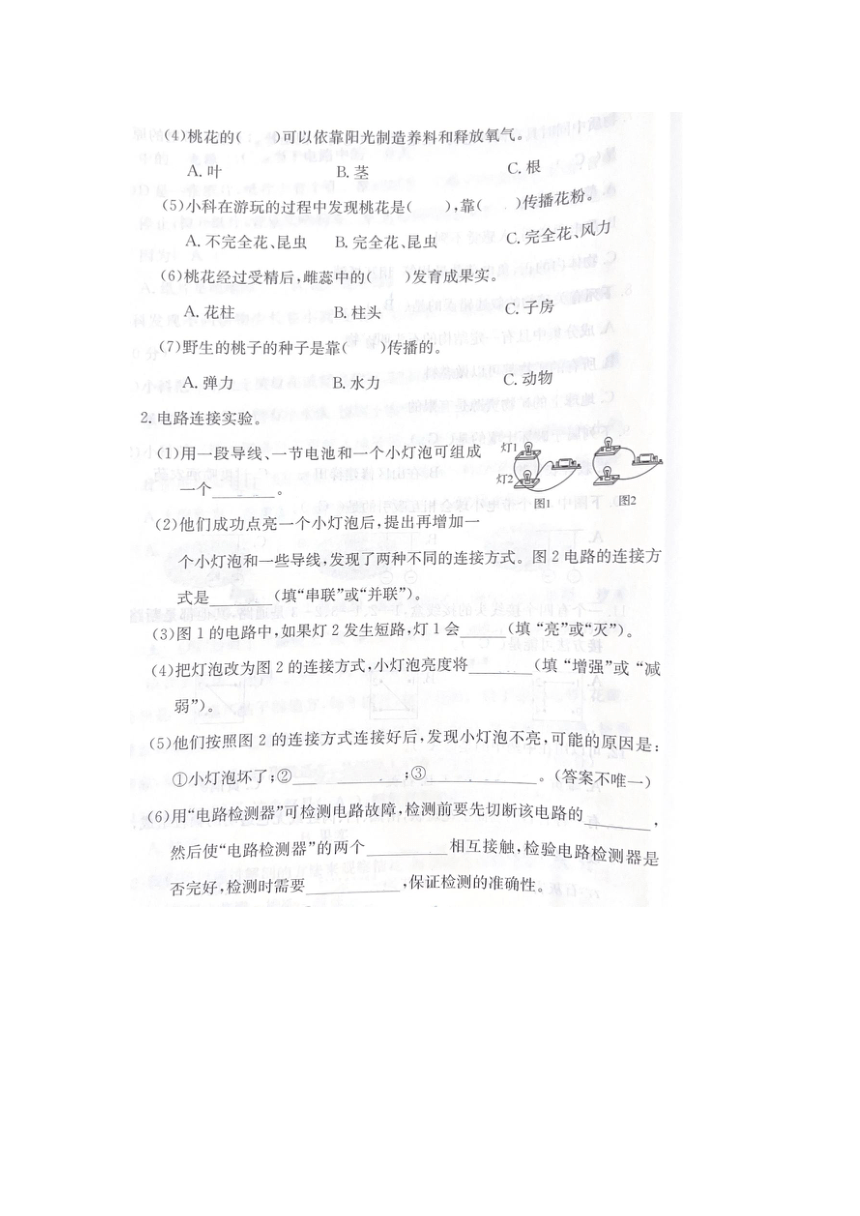 (4)桃花的(　　)可以依靠阳光制造养料和释放氧气。
A. 叶　　B. 茎　　C. 根
(5)小科在游玩的过程中发现桃花是(　　),靠(　　)传播花粉。
A. 不完全花、昆虫　　B. 完全花、昆虫　　C. 完全花、风力
(6)桃花经过受精后,雌蕊中的(　　)发育成果实。
A. 花柱　　B. 柱头　　C. 子房
(7)野生的桃子的种子是靠(　　)传播的。
A. 弹力　　B. 水力　　C. 动物
2. 电路连接实验。
(1)用一段导线、一节电池和一个小灯泡可组成
一个______。
灯1
灯2
图1　　图2
(2)他们成功点亮一个小灯泡后,提出再增加一
个小灯泡和一些导线,发现了两种不同的连接方式。图 2 电路的连接方
式是______(填“串联”或“并联”)。
(3)图 1 的电路中,如果灯 2 发生短路,灯 1 会______(填“亮”或“灭”)。
(4)把灯泡改为图 2 的连接方式,小灯泡亮度将______(填“增强”或“减
弱”)。
(5)他们按照图 2 的连接方式连接好后,发现小灯泡不亮,可能的原因是:
①小灯泡坏了;②______;③______。(答案不唯一)
(6)用“电路检测器”可检测电路故障,检测前要先切断该电路的______,
然后使“电路检测器”的两个______相互接触,检验电路检测器是
否完好,检测时需要______,保证检测的准确性。